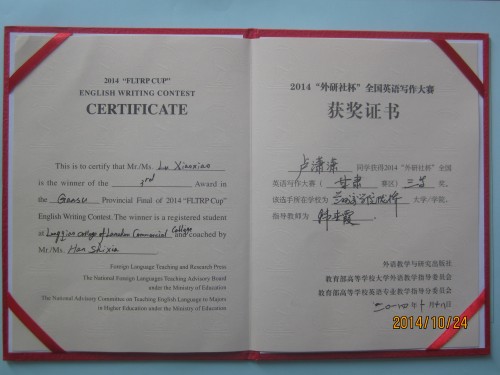 2014 "FLTRP CUP"
ENGLISH WRITING CONTEST
CERTIFICATE
This is to certify that Mr./Ms. Lu Xiaoxiao
is the winner of the 3rd Award in
the Gansu Provincial Final of 2014 "FLTRP Cup"
English Writing Contest. The winner is a registered student
at college of Lanzhou Commercial College and coached by
Mr./Ms. Han Shixia
Foreign Language Teaching and Research Press
The National Foreign Languages Teaching Advisory Board
under the Ministry of Education
The National Advisory Committee on Teaching English Language to Majors
in Higher Education under the Ministry of Education
2014 "外研社杯" 全国英语写作大赛
获奖证书
卢潇潇 同学获得2014 "外研社杯" 全国
英语写作大赛( 甘肃 赛区) 三等 奖。
该选手所在学校为 大学/学院,
指导教师为 韩 霞
外语教学与研究出版社
教育部高等学校大学外语教学指导委员会
教育部高等学校英语专业教学指导分委员会
二〇一四年十月十八日
2014/10/24